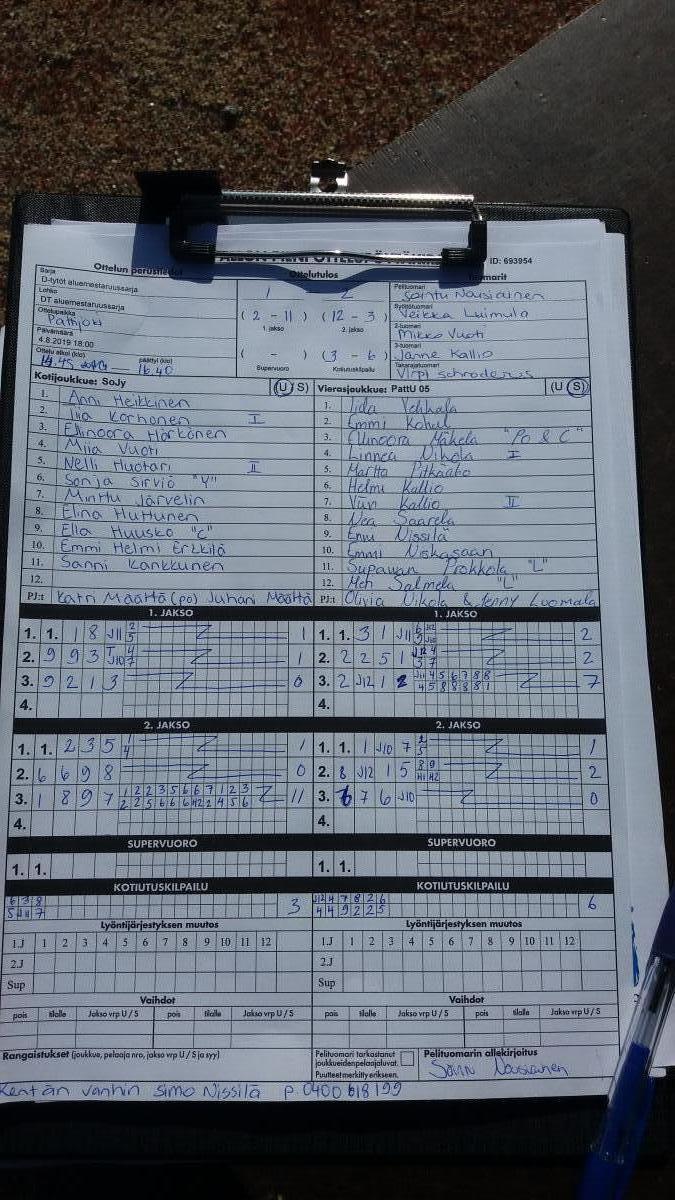 ID: 693954
Ottelun perustiedot
Ottelutulos
Sarja
D-tytöt aluemestaruussarja
Lohko
DT aluemestaruussarja
Ottelupaikka
Pattijoki
Päivämäärä
4.8.2019 18:00
Ottelu alkoi (klo)
päättyi (klo)
16.40
1 2
( 2 - 11 ) ( 12 - 3 )
1. jakso 2. jakso
( - ) (3 - 6)
Supervuoro Kotiutuskilpailu
Pelituomari
Nousiainen
Syöttötuomari
Veikka Luimula
2-tuomari
Mikko Vuoti
3-tuomari
Janne Kallio
Takarajatuomari
Virpi Schroderus
Kotijoukkue: SoJy (U S)
1. Anni Heikkinen
2. Iia Korhonen I
3. Ellinoora Härkönen
4. Miia Vuoti
5. Nelli Huotari II
6. Sonja Sirviö "Y"
7. Minttu Järvelin
8. Elina Huttunen
9. Ella Huusko "C"
10. Emmi Helmi Erkkilä
11. Sanni Kankkunen
12.
PJ:t Katri Määttä (po) Juhani Määttä
Vierasjoukkue: PattU 05 (U S)
1. Iida
2. Emmi
3. Ellinoora Mäkelä "PO & C"
4. Linnea Vikola I
5. Martta Pitkäaho
6. Helmi Kallio
7. Viivi Kallio II
8. Nea Saarela
9. Ennu Nissilä
10. Emmi
11. Supawan Prokkola "L"
12. Salmela "L"
PJ:t Olivia Vikola & Jenny Luomala
1. JAKSO
1. 1. 1 8 J11 2 5 1
2. 9 9 3 J10 4 7 1
3. 9 2 1 3 0
4.
1. JAKSO
1. 1. 3 1 J11 2
2. 2 2 5 1 2
3. 2 J12 1 2 7
4.
2. JAKSO
1. 1. 2 3 5 1 4 1
2. 6 6 9 8 0
3. 1 8 9 7 11
4.
2. JAKSO
1. 1. 1 J10 7 2 5 1
2. 8 J12 1 5 8 9 2
3. 6 7 6 J10 0
4.
SUPERVUORO
1. 1.
SUPERVUORO
1. 1.
KOTIUTUSKILPAILU
6 3 8
5 J11 7
3
KOTIUTUSKILPAILU
J12 4 7 8 2 6
4 4 9 2 2 5
6
Lyöntijärjestyksen muutos
1.J 1 2 3 4 5 6 7 8 9 10 11 12
2.J
Sup
Lyöntijärjestyksen muutos
1.J 1 2 3 4 5 6 7 8 9 10 11 12
2.J
Sup
Vaihdot
pois tilalle Jakso vrp U / S pois tilalle Jakso vrp U / S
Vaihdot
pois tilalle Jakso vrp U / S pois tilalle Jakso vrp U / S
Rangaistukset (joukkue, pelaaja nro, jakso vrp U / S ja syy)
Pelituomari tarkastanut
joukkueiden pelaajaluvat.
Puutteet merkitty erikseen.
Pelituomarin allekirjoitus
Nousiainen
Kentän vanhin Simo Nissilä p. 0400 618199